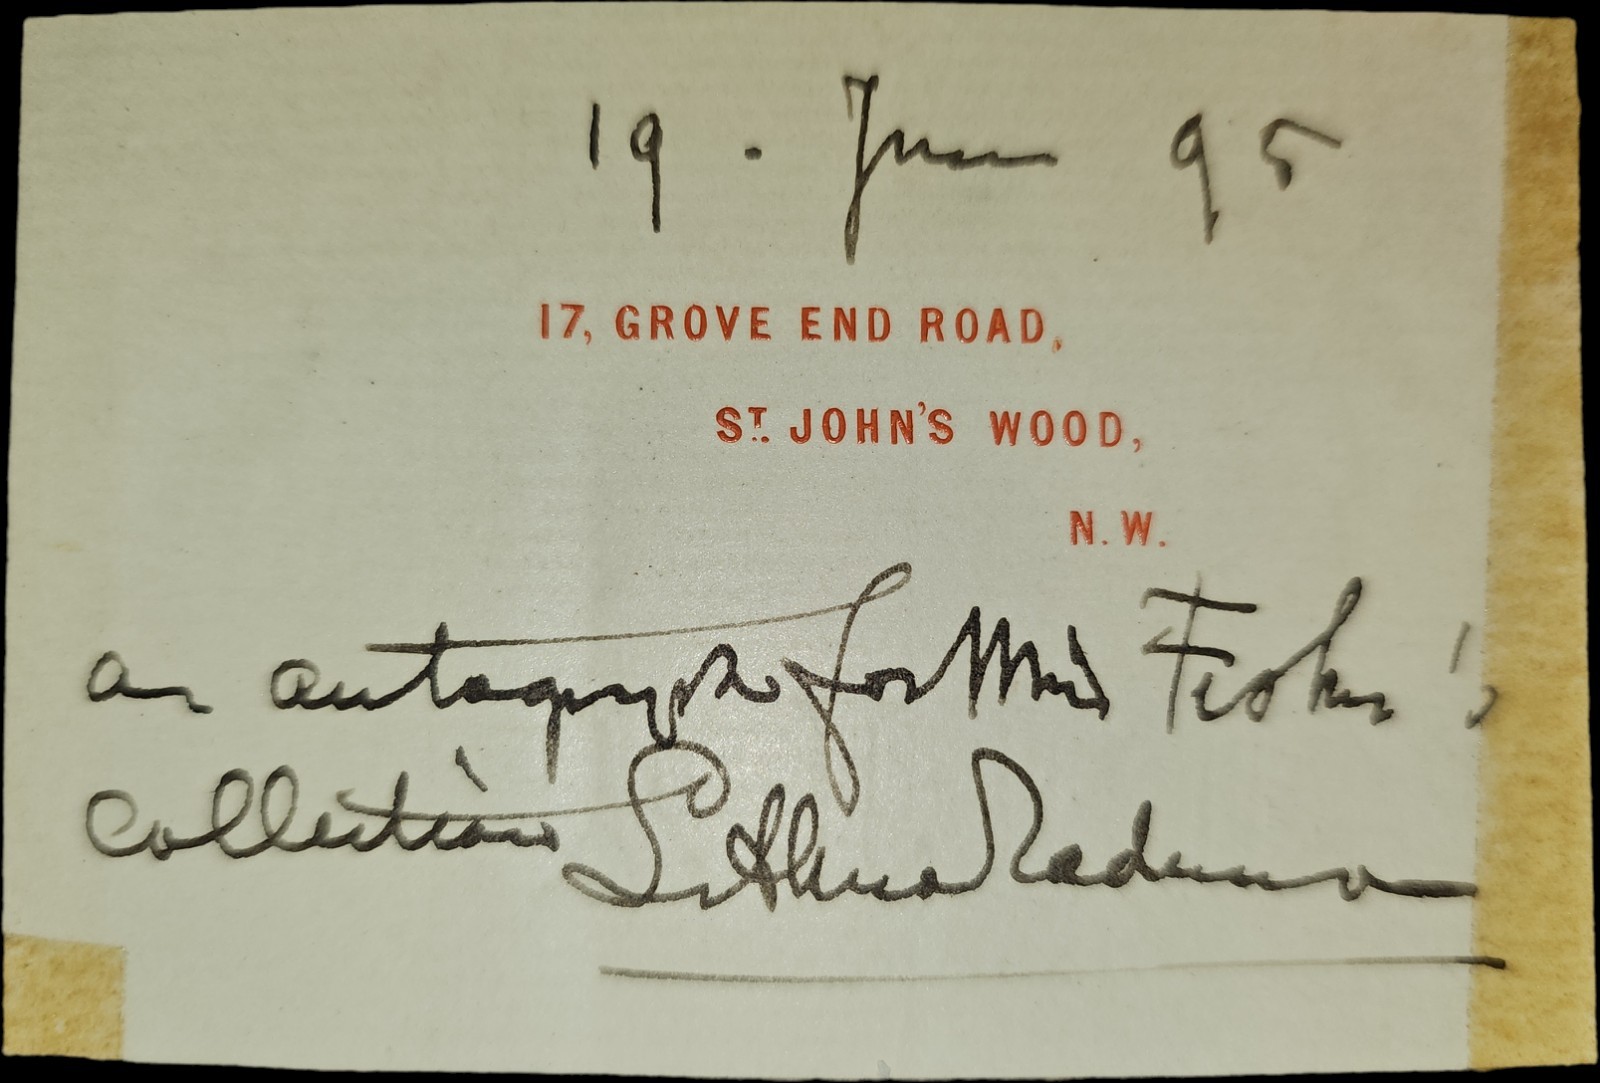 19 . June 95
17, GROVE END ROAD,
ST. JOHN'S WOOD,
N. W.
an autograph for Miss Fisher's
collection L Alma Tadema